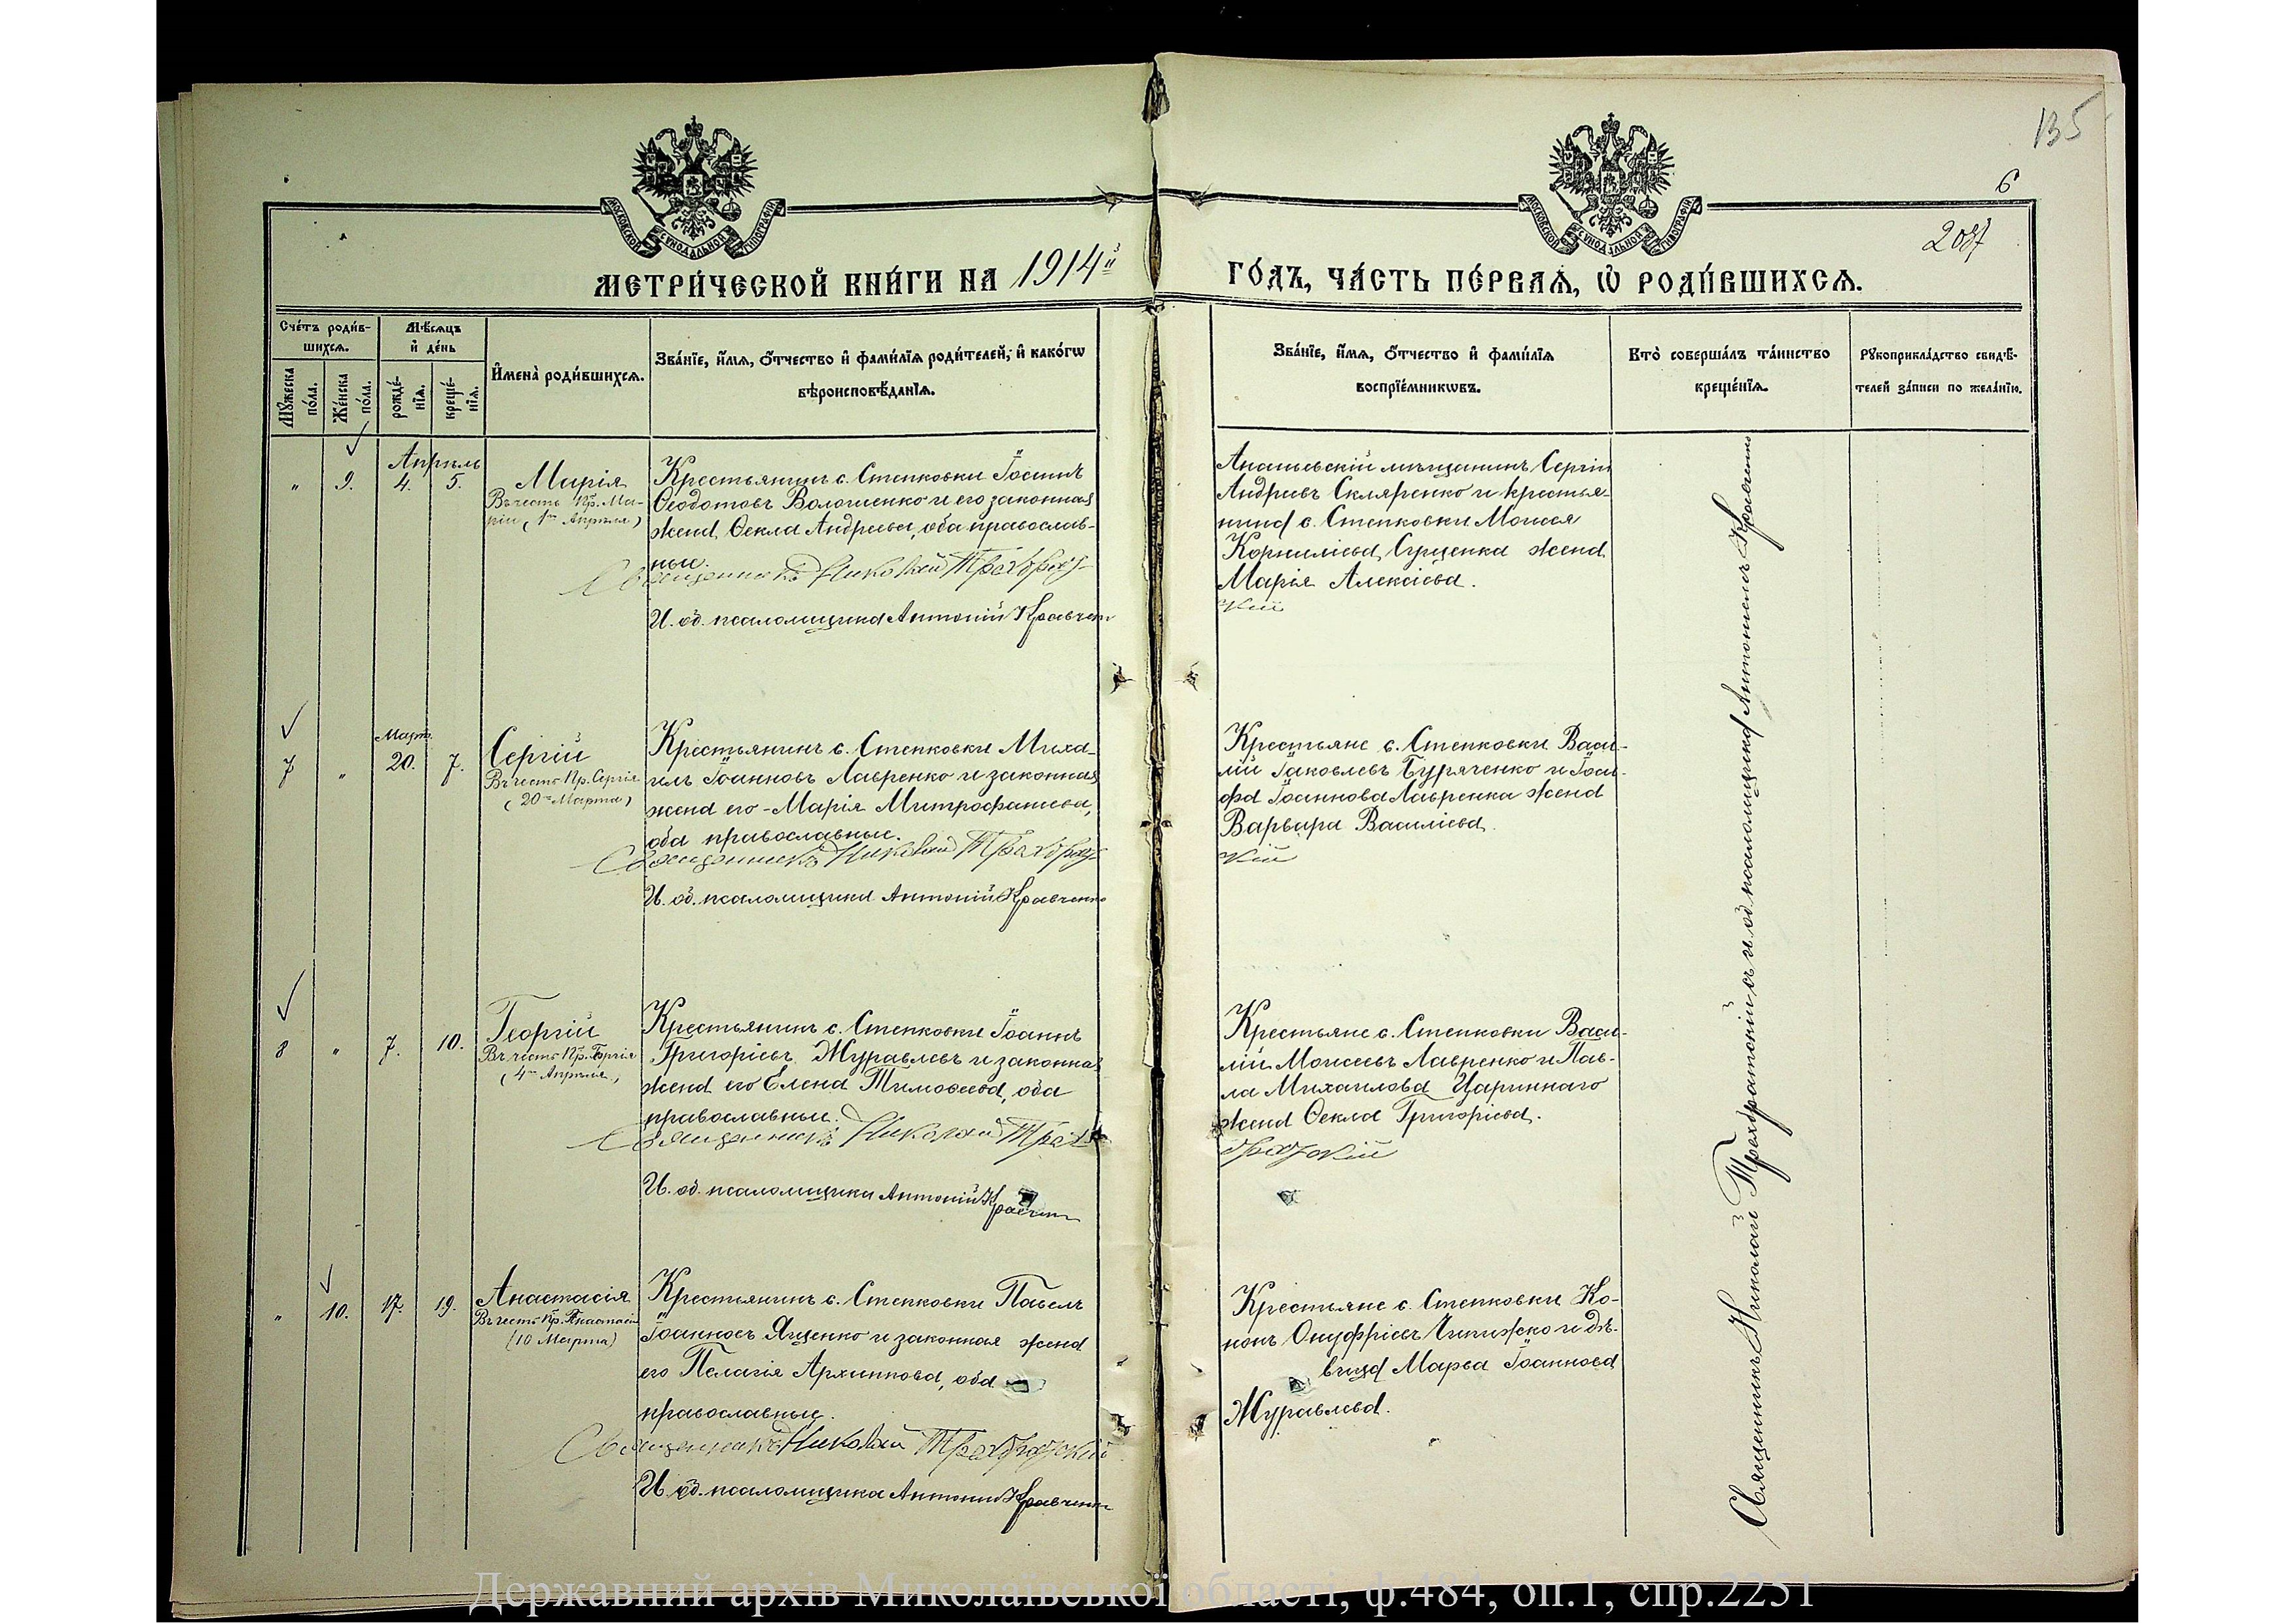 135
6
207
МОСКОВСКОЙ СѴНОДАЛЬНОЙ ТИПОГРАФІИ
МОСКОВСКОЙ СѴНОДАЛЬНОЙ ТИПОГРАФІИ
МЕТРИ́ЧЕСКОЙ КНИ́ГИ НА 1914й
ГО́ДЪ, ЧА́СТЬ ПЕ́РВАѦ, Ѡ РОДИ́ВШИХСѦ.
Сче́тъ роди́в-
шихсѧ.
Мꙋжеска
по́ла.
Же́нска
по́ла.
Мѣ́сѧцъ
и҆ де́нь
рожде́-
нїѧ.
креще́-
нїѧ.
И҆мена̀ роди́вшихсѧ.
Зва́нїе, и҆́мѧ, ѻ҆́тчество и҆ фамилїѧ роди́телей, и҆ како́гѡ
вѣроисповѣ́данїѧ.
Зва́нїе, и҆́мѧ, ѻ҆́тчество и҆ фами́лїѧ
воспрїе́мникѡвъ.
Кто̀ соверша́лъ та́инство
креще́нїѧ.
Рꙋкоприкла́дство свидѣ́-
телей за́писи по жела́нїю.
Апрѣль
" 9. 4. 5.
Марія
Въ честь Пр. Ма-
ріи (1го Апрѣля)
Крестьянинъ с. Степковки Іоаннъ
Ѳеодотовъ Волошенко и его законная
жена Ѳекла Андреева, оба православ-
ные.
Священникъ Николай Трехбратс-
И. об. псаломщика Антоній Кравченко
Ананьевскій мѣщанинъ Сергій
Андреевъ Скляренко и крестья-
нина с. Степковки Моисея
Корниліева Луценка жена
Марія Алексіева.
кій
Март.
7 " 20. 7.
Сергій
Въ честь Пр. Сергія
(20го Марта)
Крестьянинъ с. Степковки Миха-
илъ Іоанновъ Лавренко и законная
жена его - Марія Митрофанева,
оба православные.
Священникъ Николай Трехбратс-
И. об. псаломщика Антоній Кравченко
Крестьяне с. Степковки Васи-
лій Іаковлевъ Буряченко и Іоси-
фа Іоаннова Лавренка жена
Варвара Василіева.
кій
8 " 7. 10.
Георгій
Въ честь Пр. Георгія
(4го Апрѣля)
Крестьянинъ с. Степковки Іоаннъ
Григоріевъ Журавлевъ и законная
жена его Елена Тимоѳеева, оба
православные.
Священникъ Николай Трех-
И. об. псаломщика Антоній Кравченко
Крестьяне с. Степковки Васи-
лій Моисеевъ Лавренко и Пав-
ла Михаилова Царинного
жена Ѳекла Григоріева.
братскій
" 10. 17. 19.
Анастасія
Въ честь Пр. Анастасіи
(10 Марта)
Крестьянинъ с. Степковки Павелъ
Іоанновъ Яценко и законная жена
его Пелагія Архиппова, оба
православные.
Священникъ Николай Трехбратскій
И. об. псаломщика Антоній Кравченко
Крестьяне с. Степковки Ко-
нонъ Онуфріевъ Чипижко и дѣ-
вица Марѳа Іоаннова
Журавлева.
Священникъ Николай Трехбратскій съ и. об. псаломщика Антоніемъ Кравченко
Державний архів Миколаївської області, ф.484, оп.1, спр.2251